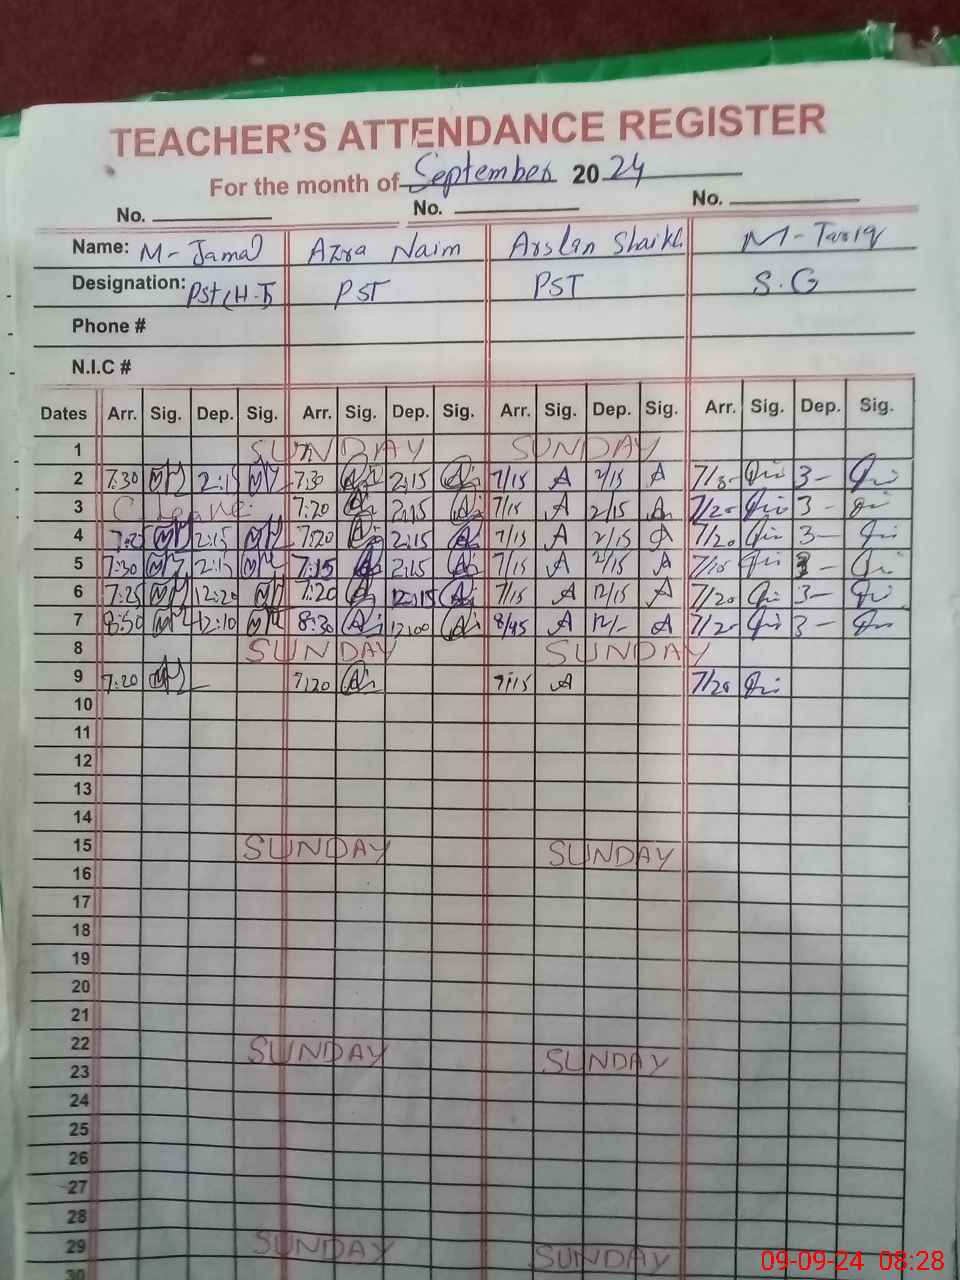 TEACHER'S ATTENDANCE REGISTER
For the month of September 2024
No. No. No.
Name: M-Jamal Azra Naim Arslan Shaikh M-Tariq
Designation: PST (H.T) PST PST S.G
Phone #
N.I.C #
Dates Arr. Sig. Dep. Sig. Arr. Sig. Dep. Sig. Arr. Sig. Dep. Sig. Arr. Sig. Dep. Sig.
1 SUNDAY SUNDAY
2 7:30 2:15 7:30 2:15 7/15 A 2/15 A 3-
3 C leave 7:20 2:15 7/15 A 2/15 A 7/20 3-
4 2:15 7:20 2:15 7/15 A 2/15 A 7/20 3-
5 7:30 7:15 2:15 7/15 A 2/15 A 3-
6 7:25 12:20 7:20 12:15 7/15 A 12/15 A 7/20 3-
7 8:50 12:10 8:30 12:00 8/45 A 12/- A 7/20 3-
8 SUNDAY SUNDAY
9 7:20 7:20 7:15 A 7/20
10
11
12
13
14
15 SUNDAY SUNDAY
16
17
18
19
20
21
22 SUNDAY SUNDAY
23
24
25
26
27
28
29 SUNDAY SUNDAY
30
09-09-24 08:28